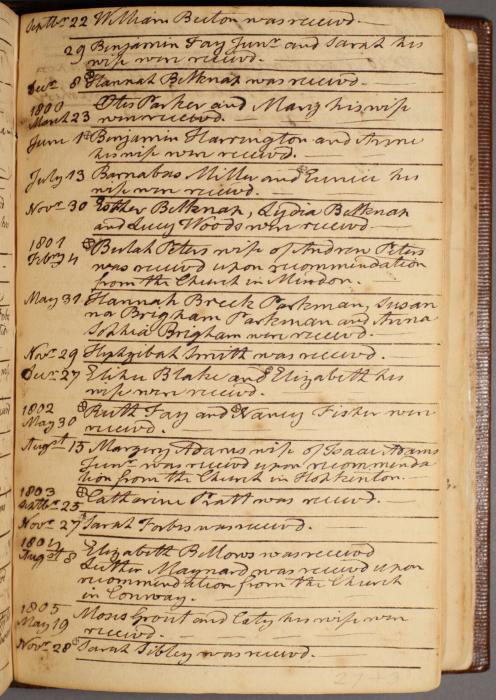 Septbr 22 William Beeton was receivd.
29 Benjamin Fay Junr and Sarah his
wife were receivd.
Decr 8 Hannah Belknap was receivd.
1800 Otis Parker and Mary his wife
March 23 were receivd.
June 1st Benjamin Harrington and Anne
his wife were receivd.
July 13 Barnabas Miller and Eunice his
wife were receivd.
Novr 30 Esther Belknap, Lydia Belknap
and Lucy Woods were receivd.
1801 Beulah Peters wife of Andrew Peters
Febr was receivd upon recommendation
from the Church in Mendon.
May 31 Hannah Breck Parkman, Susan
na Brigham Parkman and Anna
Sophia Brigham were receivd.
Novr 29 Hephzibah Smith was receivd.
Decr 27 Elihu Blake and Elizabeth his
wife were receivd.
1802 Ruth Fay and Nancy Fisher were
May 30 receivd.
Augst 15 Margery Adams wife of Isaac Adams
Junr was receivd upon recommenda
tion from the Church in Hopkinton.
1803 Catharine Pratt was receivd.
Septbr 25
Novr 27 Sarah Forbes was receivd.
1804 Elizabeth Bellows was receivd
Augst 8 Luther Maynard was receivd upon
recommendation from the Church
in Conway.
1805 Moses Grout and Caty his wife were
May 19 receivd.
Novr 28 Sarah Sibley was receivd.